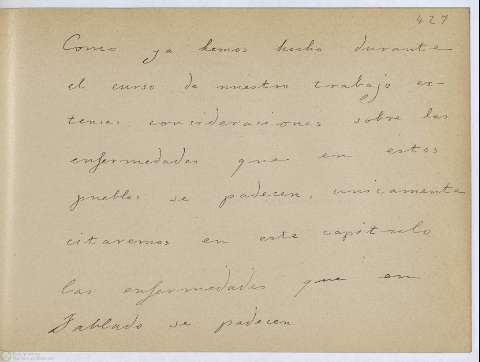 427
Como ya hemos hecho durante
el curso de nuestro trabajo ex-
tensas consideraciones sobre las
enfermedades que en estos
pueblos se padecen, unicamente
citaremos en este capítulo
las enfermedades que en
Tablado se padecen